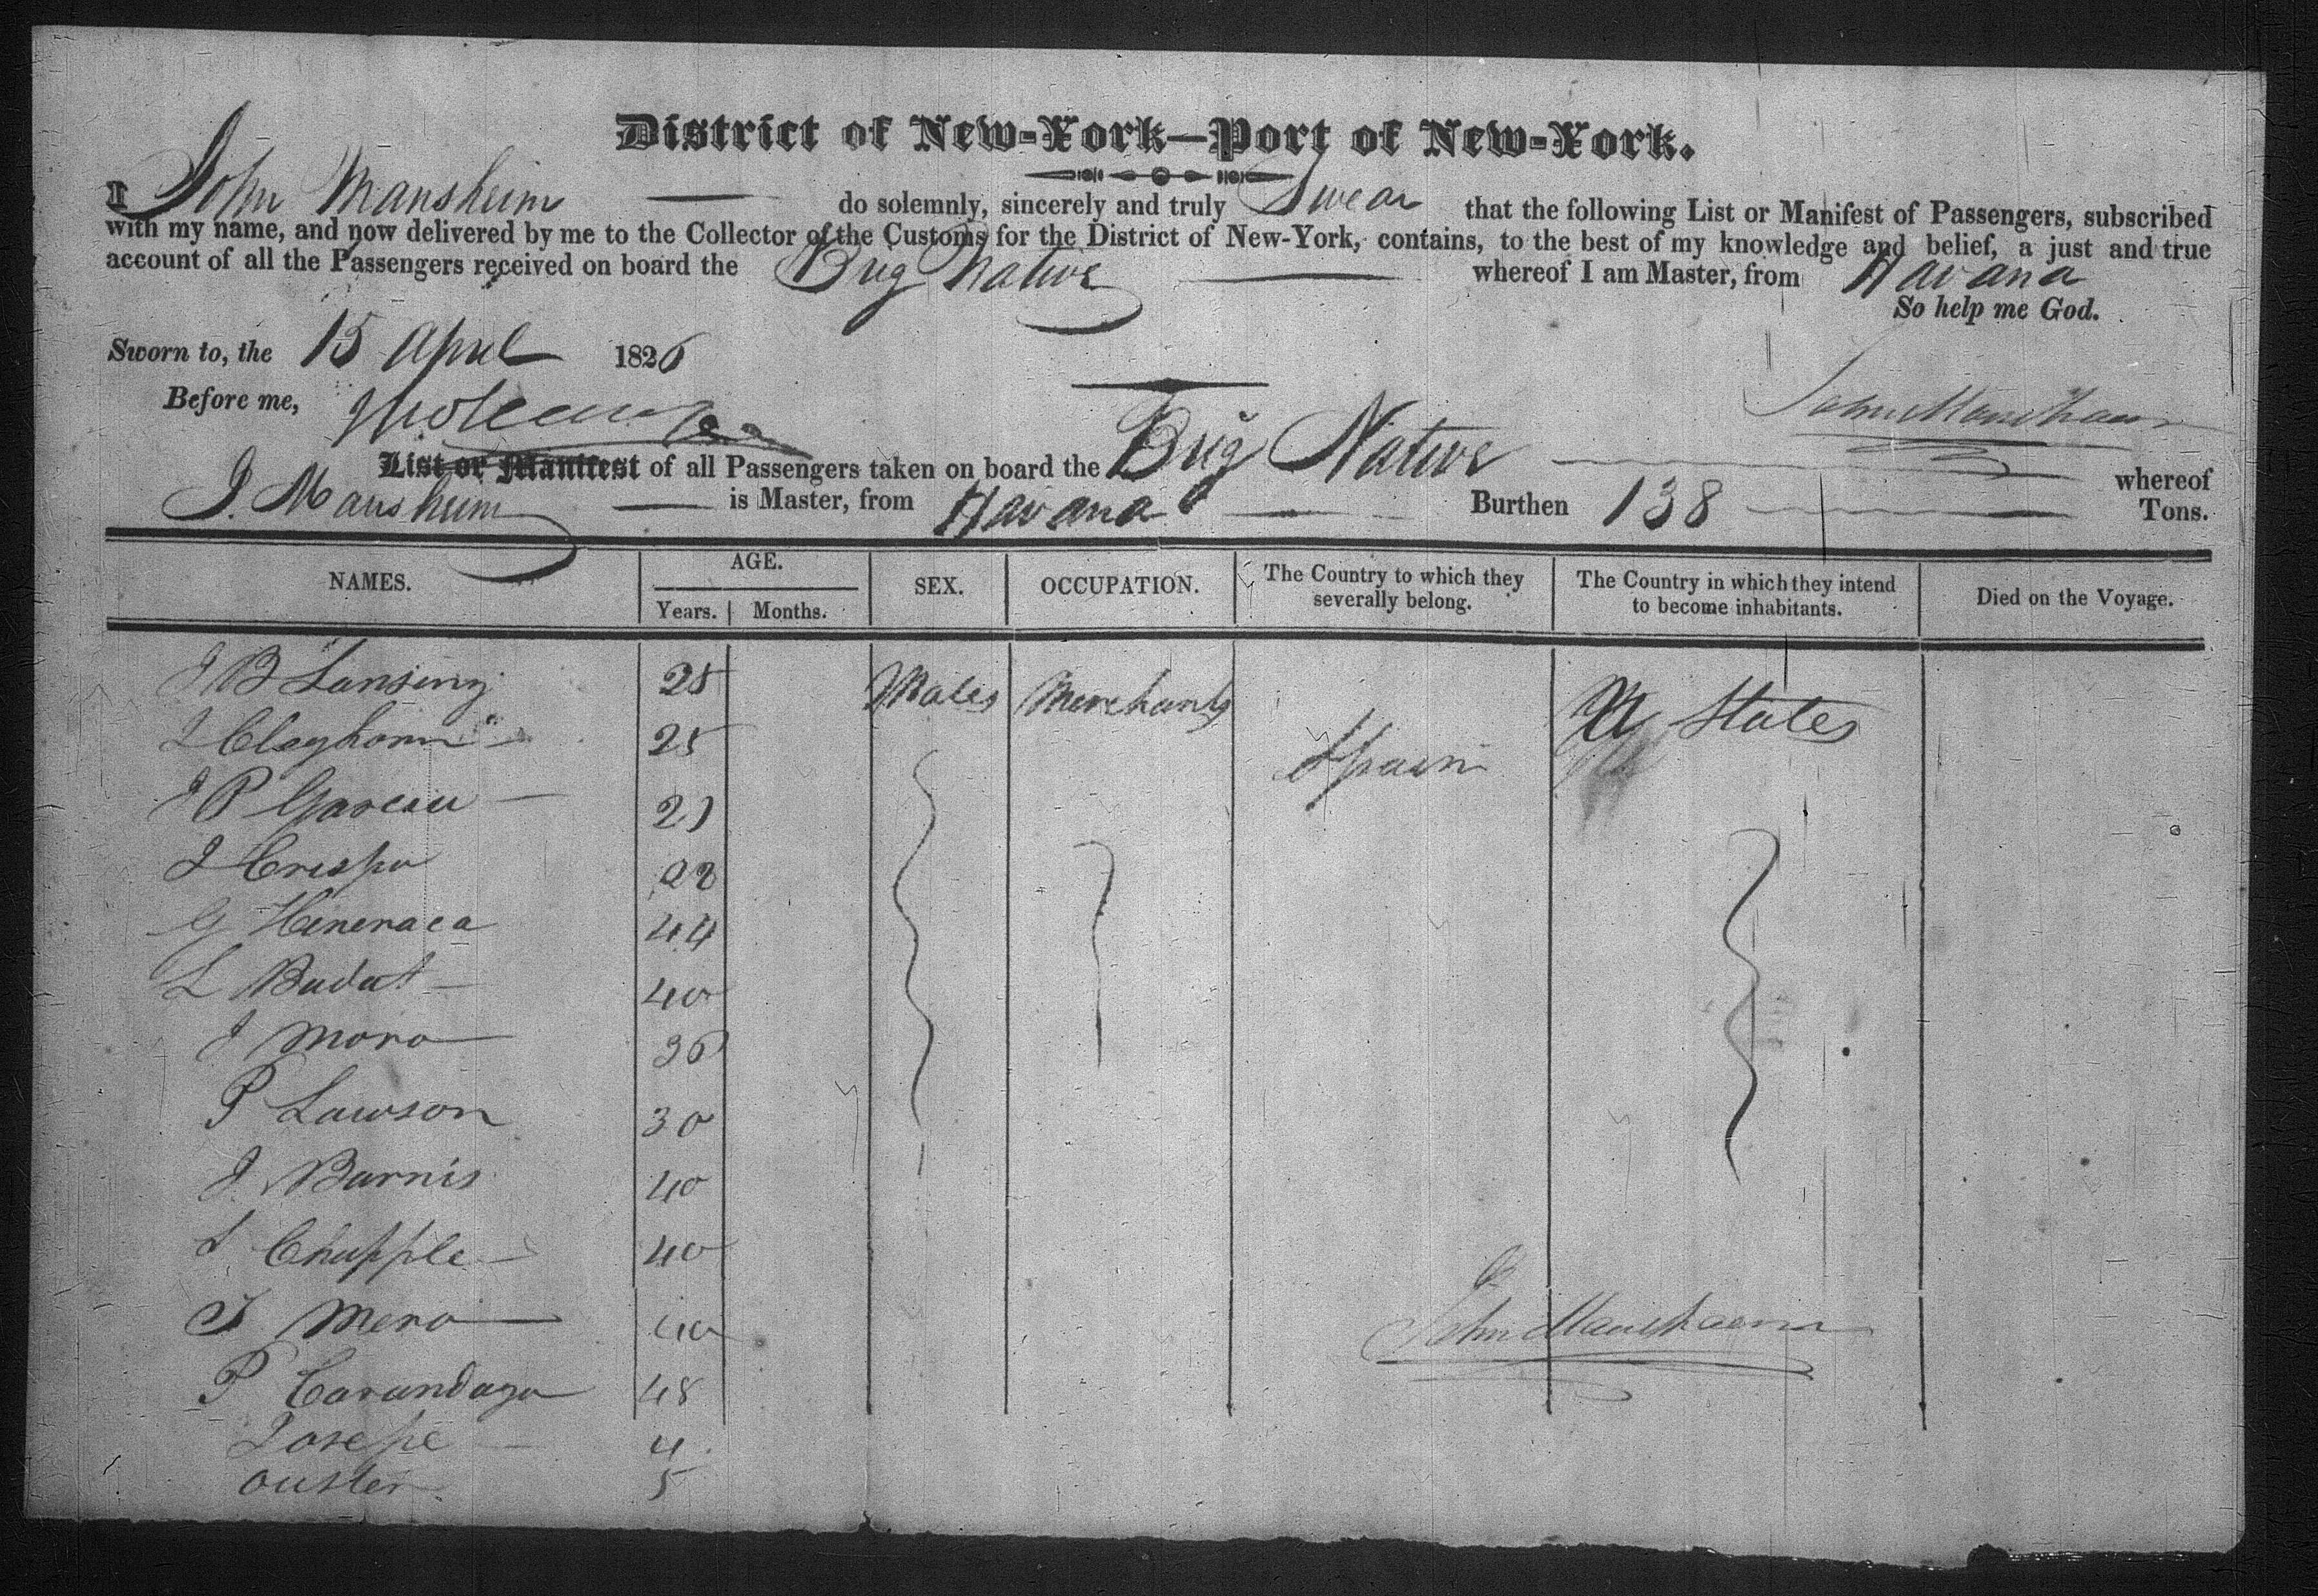 District of New-York—Port of New-York.
I John Mansheim do solemnly, sincerely and truly Swear that the following List or Manifest of Passengers, subscribed
with my name, and now delivered by me to the Collector of the Customs for the District of New-York, contains, to the best of my knowledge and belief, a just and true
account of all the Passengers received on board the Brig Native whereof I am Master, from Havana
So help me God.
Sworn to, the 15 April 1826
Before me,
John Mansheim
List or Manifest of all Passengers taken on board the Brig Native whereof
J. Mansheim is Master, from Havana Burthen 138 Tons.
NAMES. AGE. Years. Months. SEX. OCCUPATION. The Country to which they severally belong. The Country in which they intend to become inhabitants. Died on the Voyage.
J B Lansing 28 Males Merchants U States
J Cleghorn 25 Spain
J P Gareau
J Crespo 22
G 44
L Budut 40
J Moro 36
P Lawson 30
J. Burnis 40
S Chupple 40
J Mero 40
John Mansheim
P Carundaga 48
Josepe 4
Ouster 5